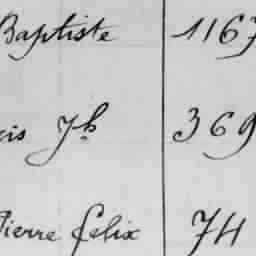 Baptiste 1167
cis Jh 369
Pierre Felix 74